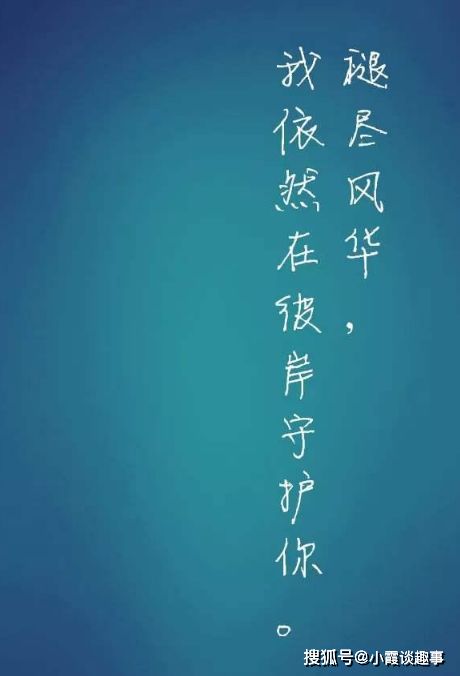 褪尽风华，
我依然在彼岸守护你。
搜狐号@小霞谈趣事